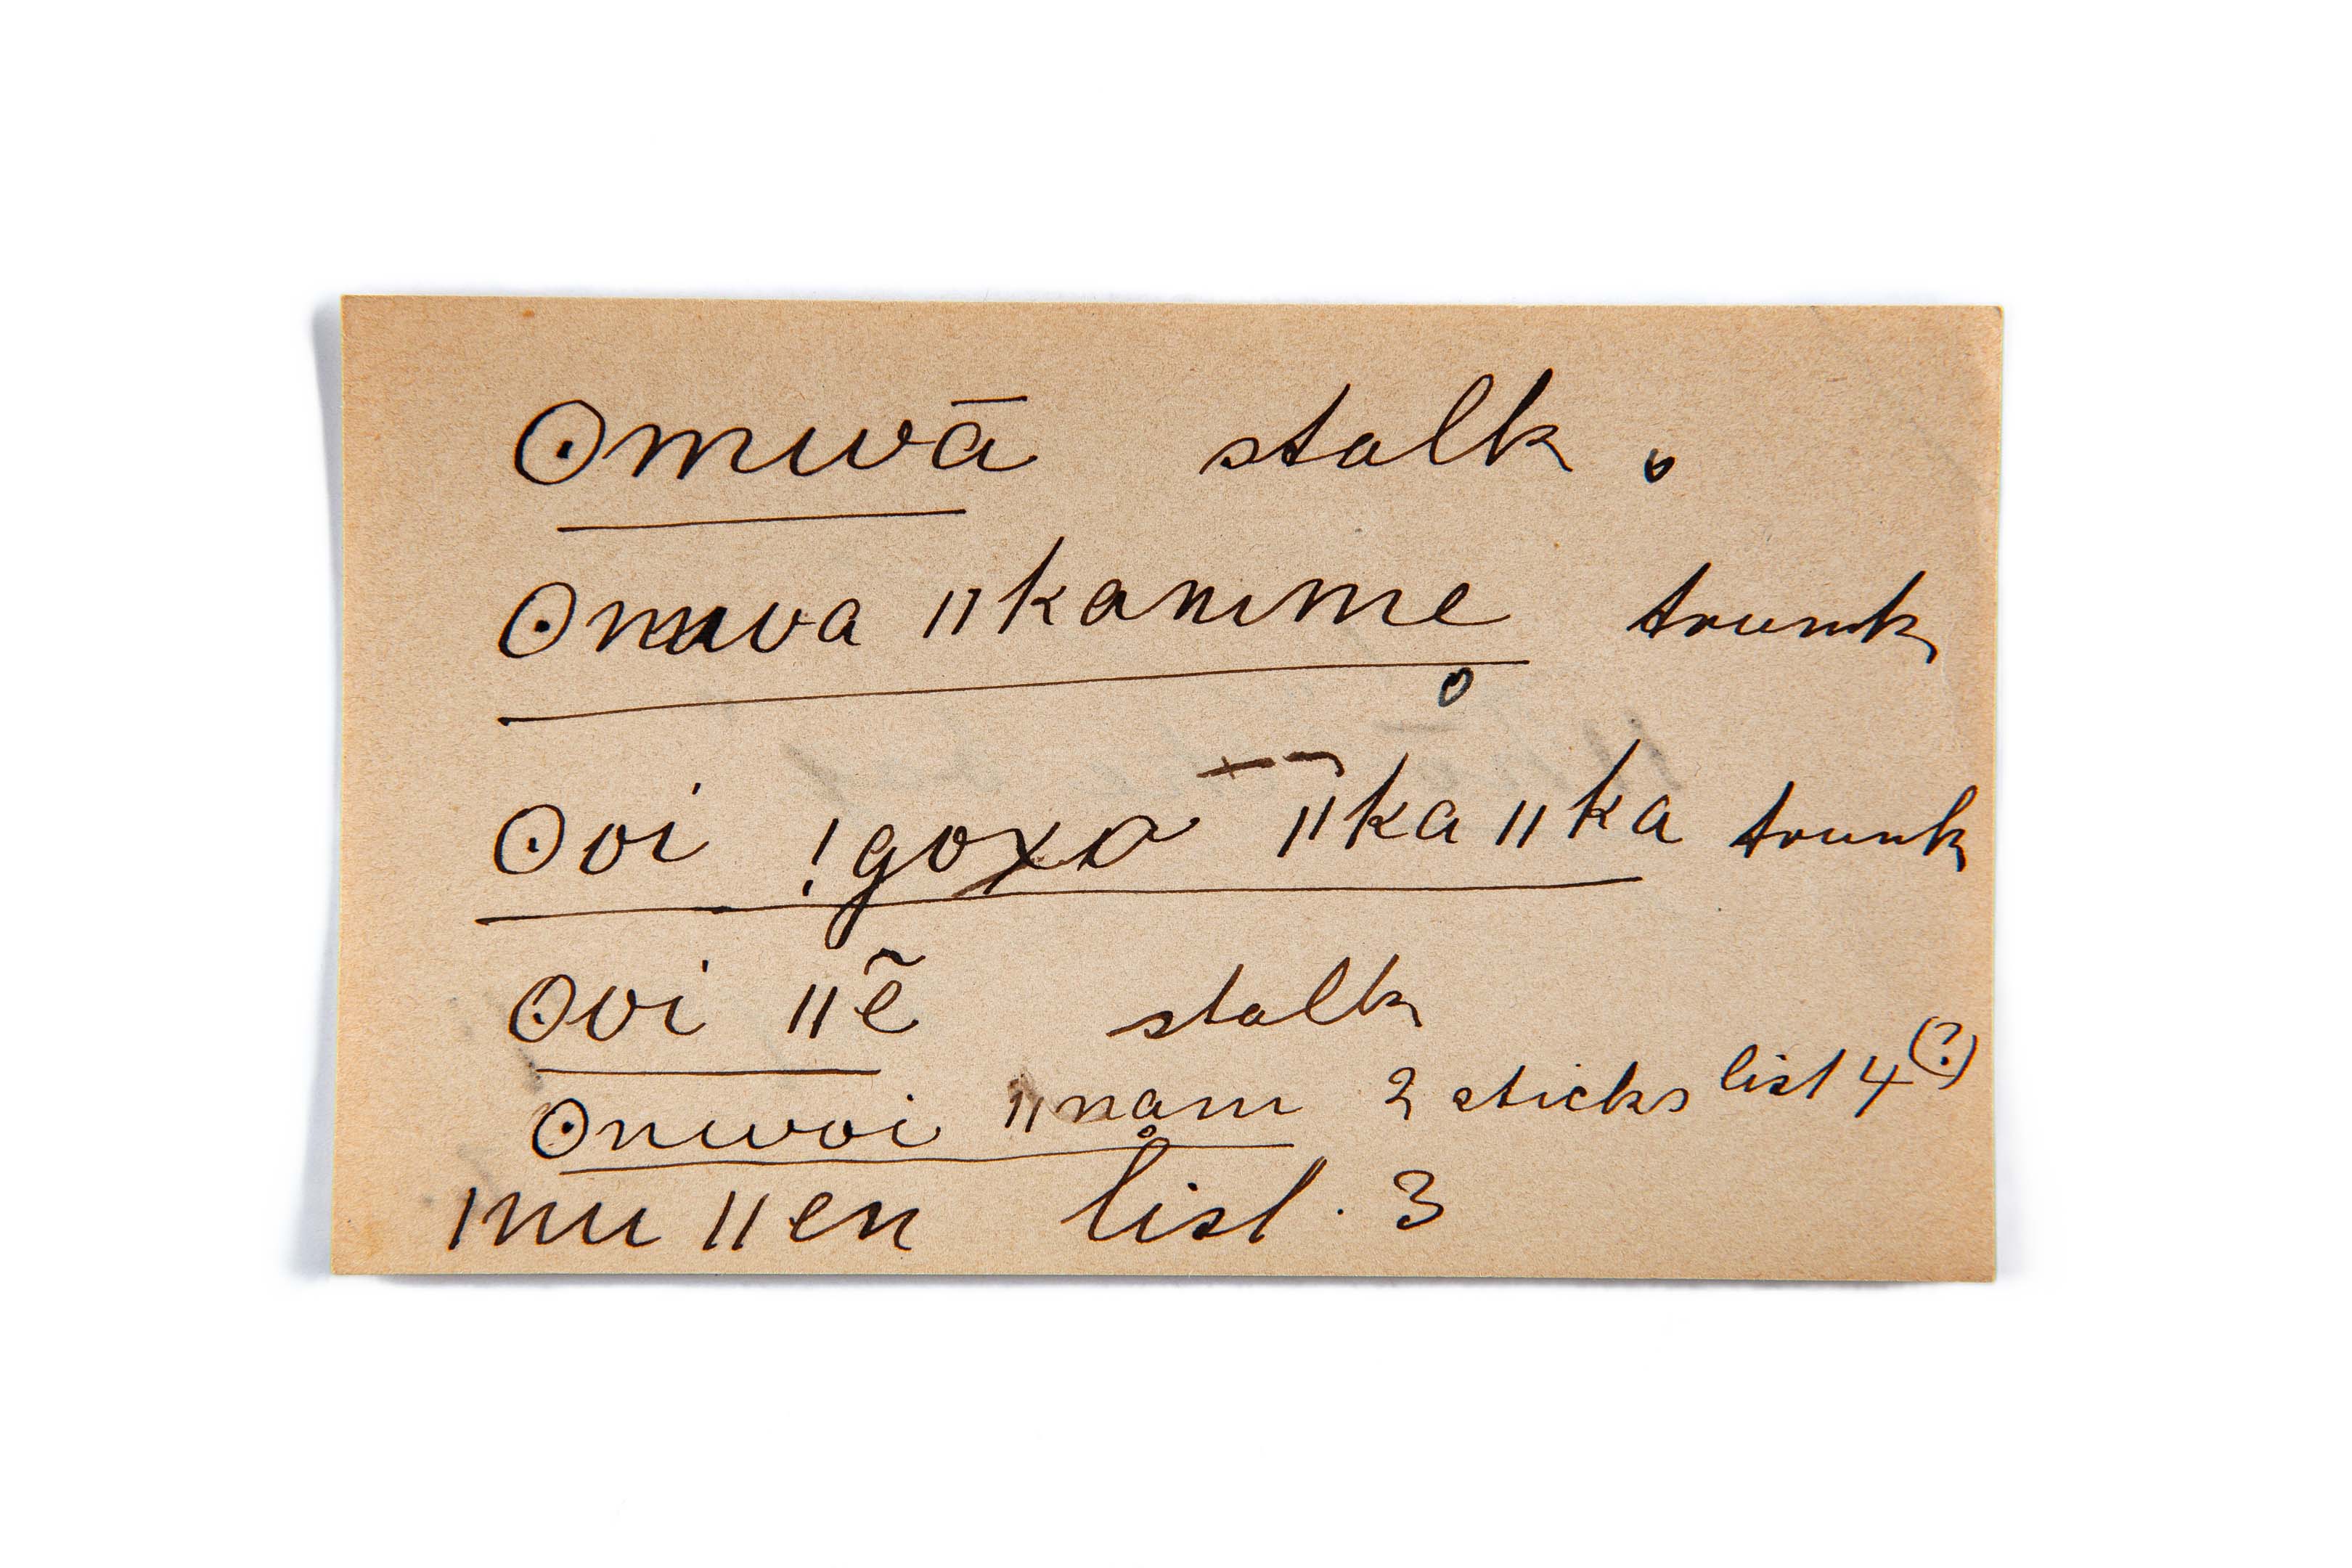 ʘmwā stalk.
ʘmwa ǁkamme̥ trunk
ʘoi ǃgoxa ǁkaǁka trunk
ʘoi ǁẽ stalk
ʘnwoi ǁnḁm 2 sticks list 4 (?)
ǀnu ǁen list. 3